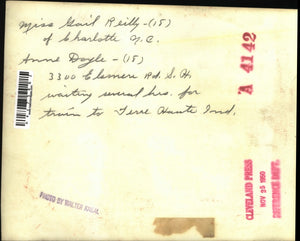 Miss Gail Reilly - (15)
of Charlotte N.C.
Anne Doyle - (15)
3300 Elsmere Rd. S.H.
waiting several hrs. for
train to Terre Haute Ind.
A 4142
PHOTO BY WALTER
CLEVELAND PRESS
NOV 25 1950
REFERENCE DEPT.